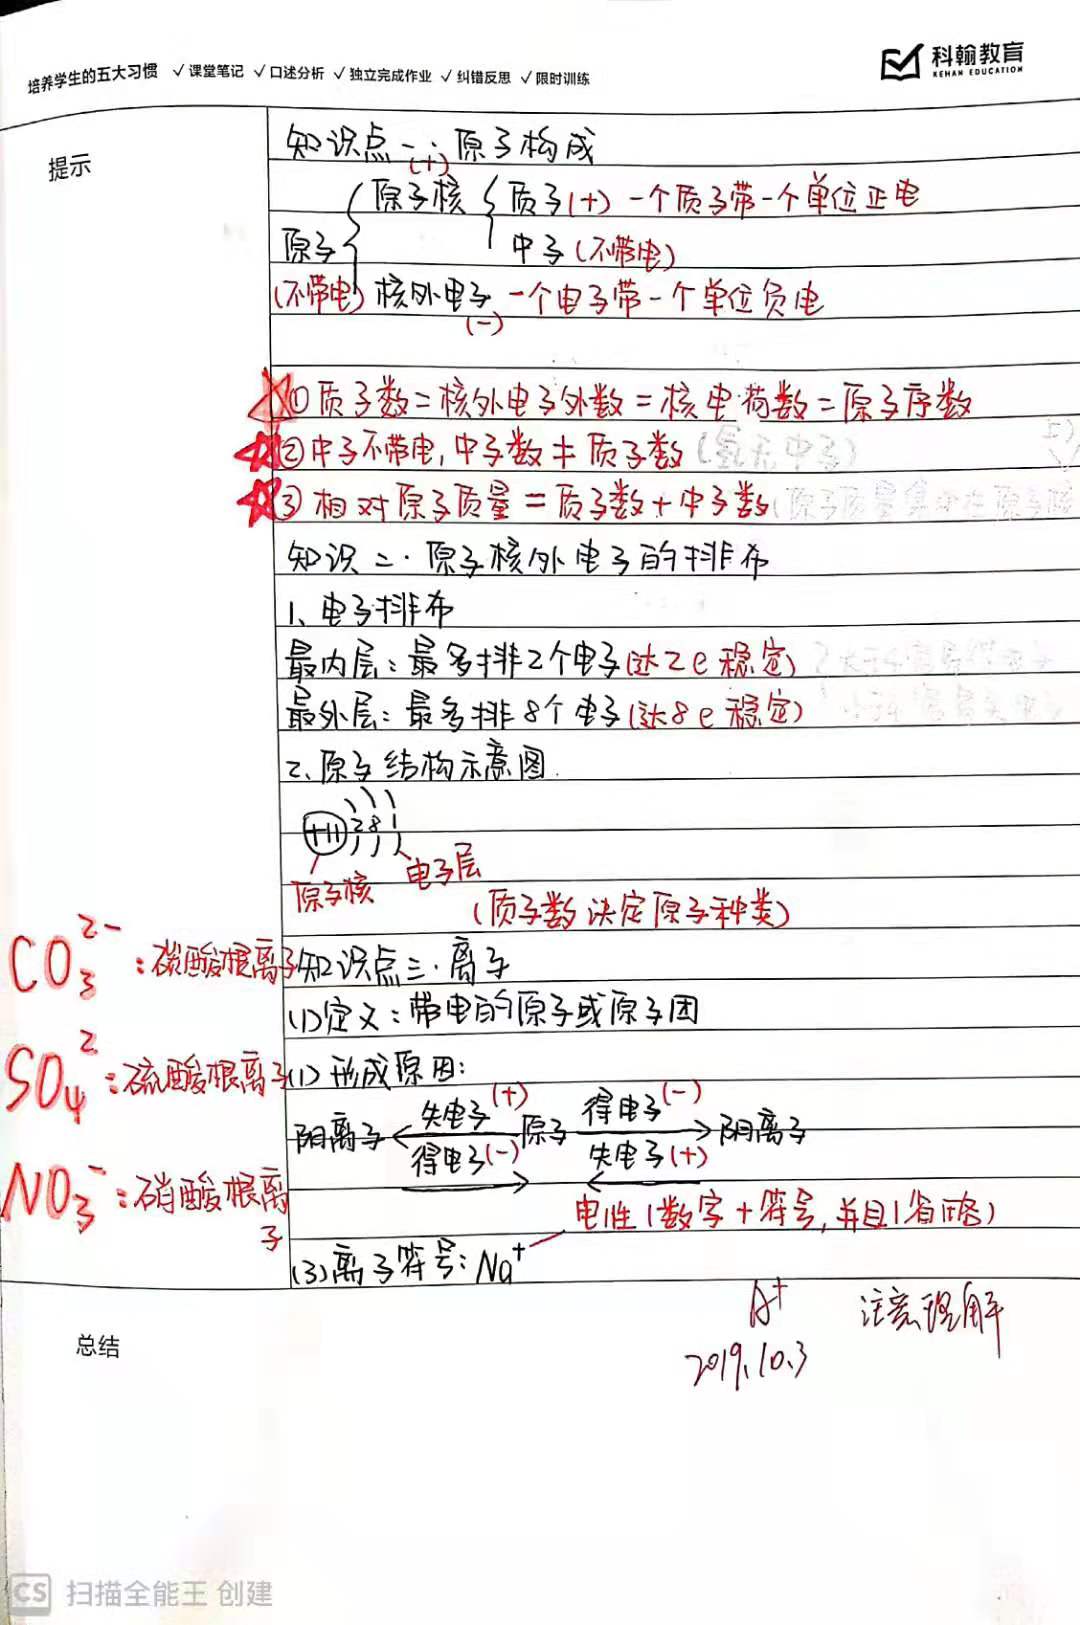 培养学生的五大习惯 ✓课堂笔记 ✓口述分析 ✓独立完成作业 ✓纠错反思 ✓限时训练
科翰教育
KEHAN EDUCATION
提示
知识点一:原子构成
(+)
原子核 质子(+) 一个质子带一个单位正电
原子 中子(不带电)
(不带电) 核外电子 一个电子带一个单位负电
(-)
①质子数=核外电子外数=核电荷数=原子序数
②中子不带电,中子数≠质子数(氢无中子)
③相对原子质量=质子数+中子数
知识二.原子核外电子的排布
1、电子排布
最内层:最多排2个电子(达2e稳定)
最外层:最多排8个电子(达8e稳定)
2、原子结构示意图.
+11 2 8 1
原子核 电子层
(质子数决定原子种类)
CO₃²⁻:碳酸根离子
知识点三.离子
(1)定义:带电的原子或原子团
SO₄²:硫酸根离子
(1)形成原因:
失电子(+) 得电子(-)
阳离子 原子 阴离子
得电子(-) 失电子(+)
NO₃⁻:硝酸根离子
电性(数字+符号,并且1省略)
(3)离子符号:Na⁺
A⁺ 注意理解
2019.10.3
总结
CS 扫描全能王 创建